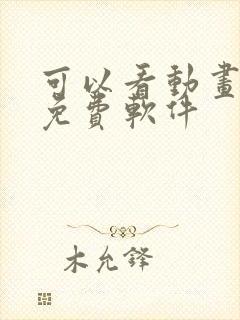 可以看動畫
免費軟件
木允鋒